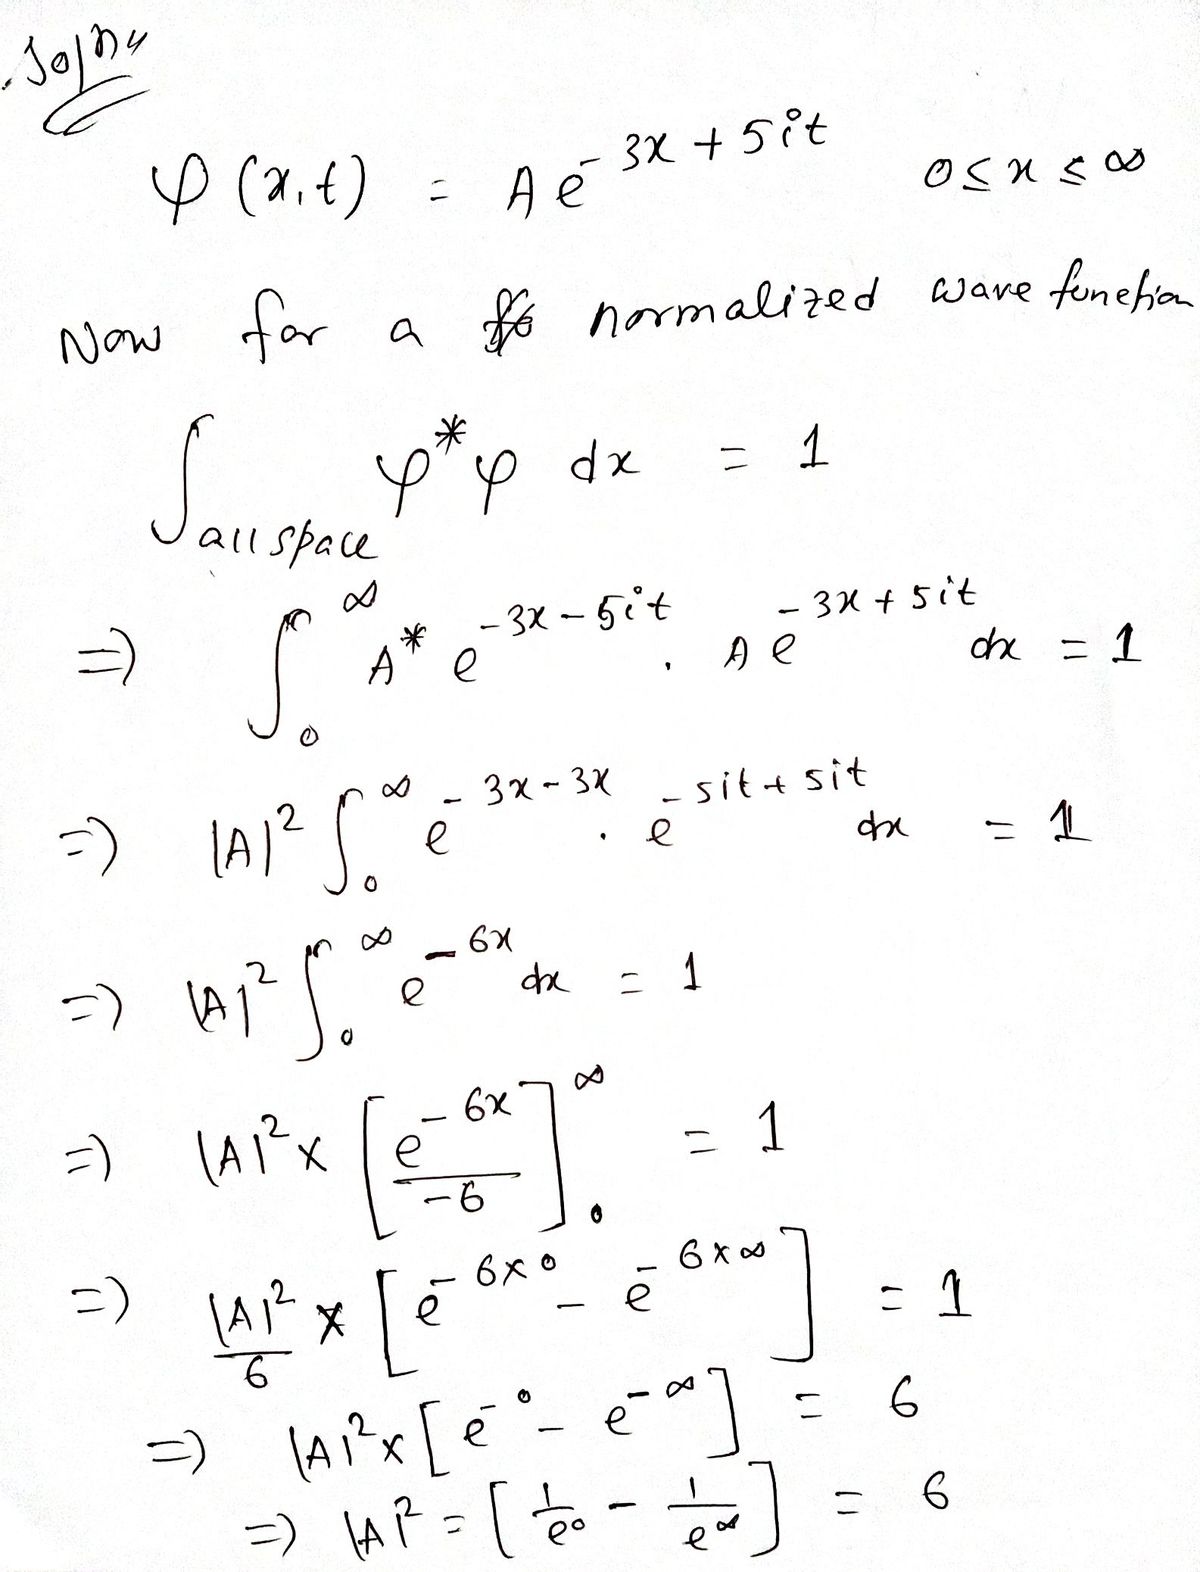 Soln
φ(x,t) = A e^{-3x+5it} 0≤x≤∞
Now for a normalized wave function
∫_{all space} φ*φ dx = 1
=> ∫_0^∞ A* e^{-3x-5it} . A e^{-3x+5it} dx = 1
=> |A|² ∫_0^∞ e^{-3x-3x} . e^{-5it+5it} dx = 1
=> |A|² ∫_0^∞ e^{-6x} dx = 1
=> |A|² × [e^{-6x}/-6]_0^∞ = 1
=> |A|²/6 × [e^{-6×0} - e^{-6×∞}] = 1
=> |A|² × [e^{-0} - e^{-∞}] = 6
=> |A|² = [1/e^0 - 1/e^∞] = 6